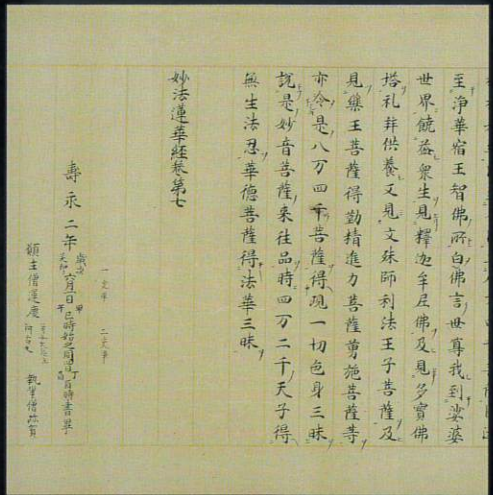 至淨華宿王智佛所白佛言世尊我到娑婆
世界饒益衆生見釋迦牟尼佛及見多寶佛
塔礼拜供養又見文殊師利法王子菩薩及
見藥王菩薩得勤精進力菩薩勇施菩薩等
亦令是八万四千菩薩得現一切色身三昧
說是妙音菩薩来往品時四万二千天子得
無生法忍華德菩薩得法華三昧
妙法蓮華經卷第七
一交了 二交了
壽永二年歳次癸卯六月一日甲午巳時始之同時書畢
願主僧運慶 執筆僧珎賀